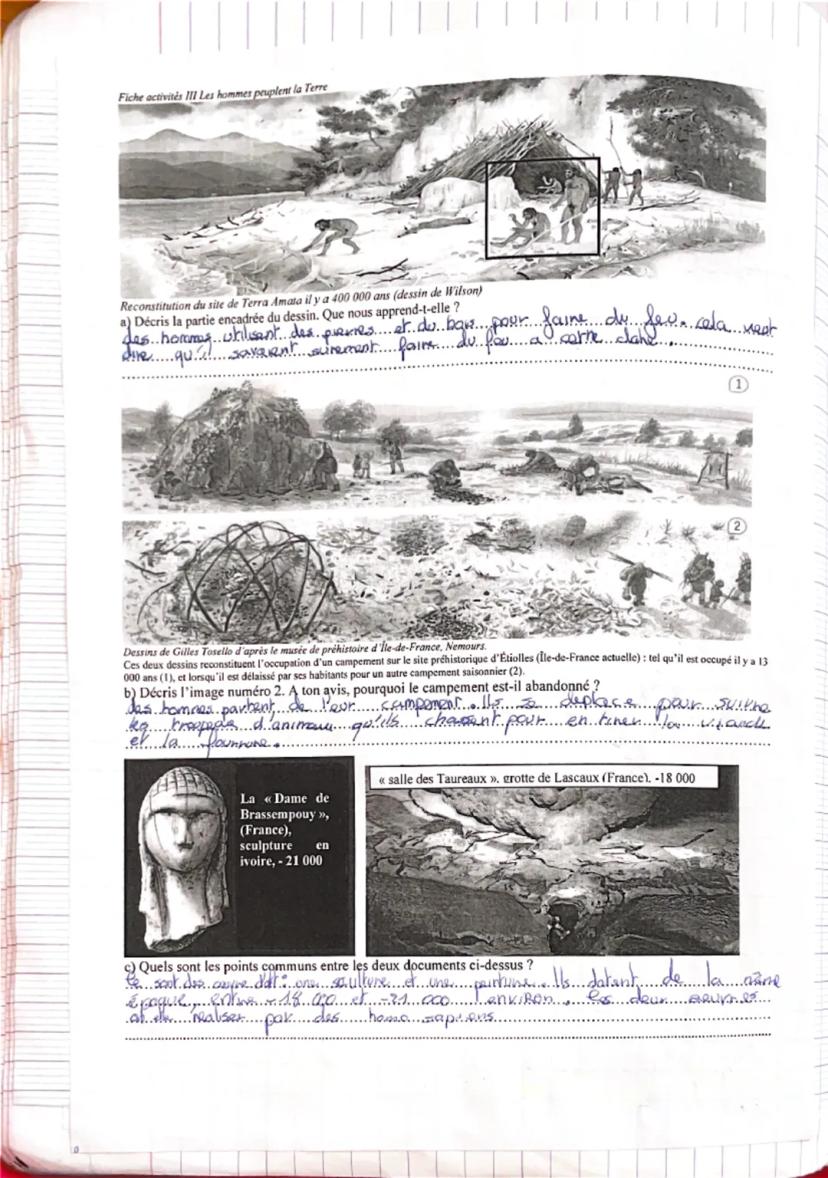 Fiche activités III Les hommes peuplent la Terre
Reconstitution du site de Terra Amata il y a 400 000 ans (dessin de Wilson)
a) Décris la partie encadrée du dessin. Que nous apprend-t-elle ?
des hommes utilisent des pierres et du bois pour faire du feu. cela veut
dire qu'il savaient surement faire du feu a cette date.
1
2
Dessins de Gilles Tosello d'après le musée de préhistoire d'Île-de-France, Nemours.
Ces deux dessins reconstituent l'occupation d'un campement sur le site préhistorique d'Étiolles (Île-de-France actuelle) : tel qu'il est occupé il y a 13
000 ans (1), et lorsqu'il est délaissé par ses habitants pour un autre campement saisonnier (2).
b) Décris l'image numéro 2. A ton avis, pourquoi le campement est-il abandonné ?
des hommes partent de leur campement. Ils se deplace pour suivre
les d'animaux qu'ils chassent pour en tirer la viande
et la fourrure.
La « Dame de
Brassempouy »,
(France),
sculpture en
ivoire, - 21 000
« salle des Taureaux ». grotte de Lascaux (France). -18 000
c) Quels sont les points communs entre les deux documents ci-dessus ?
Ce sont des une sculture et une peinture. Ils datent de la même
époque, entre -18 000 et -21 000 environ. les deux œuvres
réaliser par des homo sapiens